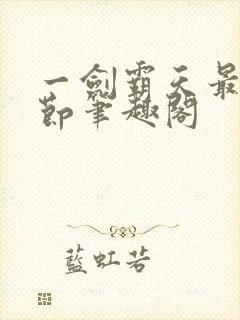 一劍霸天最
節筆趣閣
藍虹若